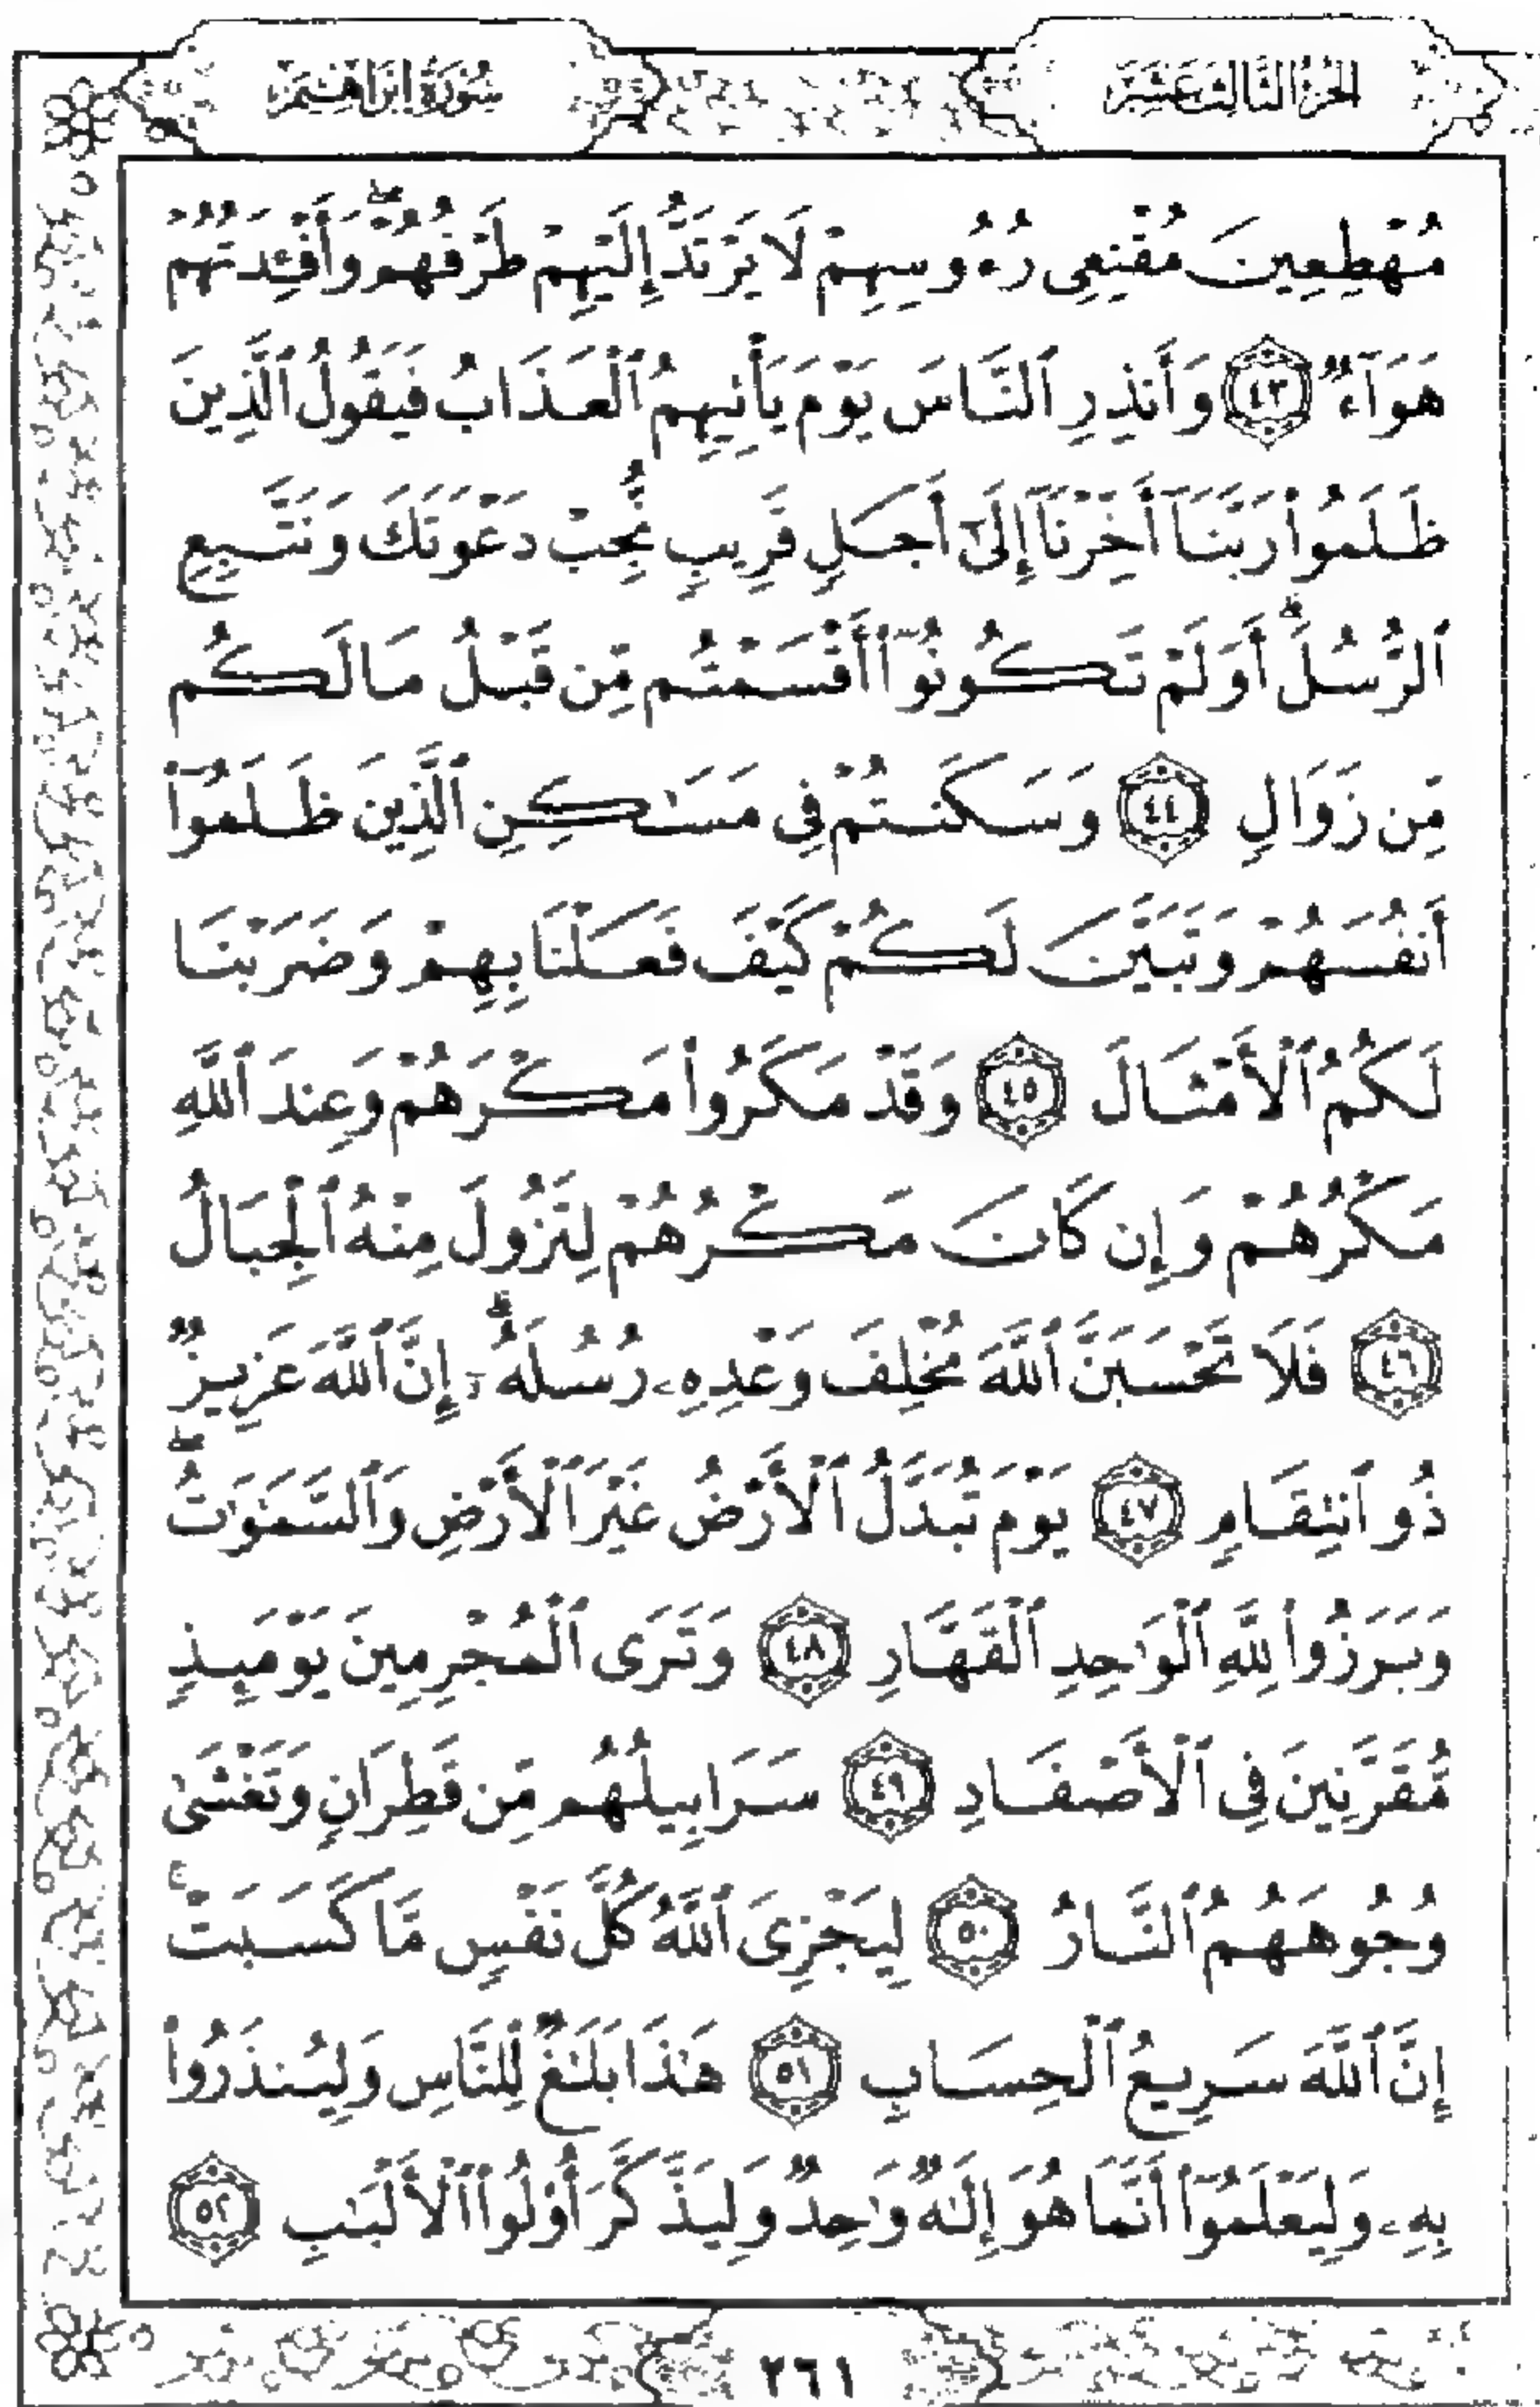 الجزء الثالث عشر
سورة إبراهيم
مُهْطِعِينَ مُقْنِعِى رُءُوسِهِمْ لَا يَرْتَدُّ إِلَيْهِمْ طَرْفُهُمْۖ وَأَفْـِٔدَتُهُمْ
هَوَآءٌ ﴿٤٣﴾ وَأَنذِرِ ٱلنَّاسَ يَوْمَ يَأْتِيهِمُ ٱلْعَذَابُ فَيَقُولُ ٱلَّذِينَ
ظَلَمُوا۟ رَبَّنَآ أَخِّرْنَآ إِلَىٰٓ أَجَلٍ قَرِيبٍ نُّجِبْ دَعْوَتَكَ وَنَتَّبِعِ
ٱلرُّسُلَۗ أَوَلَمْ تَكُونُوٓا۟ أَقْسَمْتُم مِّن قَبْلُ مَا لَكُم
مِّن زَوَالٍ ﴿٤٤﴾ وَسَكَنتُمْ فِى مَسَٰكِنِ ٱلَّذِينَ ظَلَمُوٓا۟
أَنفُسَهُمْ وَتَبَيَّنَ لَكُمْ كَيْفَ فَعَلْنَا بِهِمْ وَضَرَبْنَا
لَكُمُ ٱلْأَمْثَالَ ﴿٤٥﴾ وَقَدْ مَكَرُوا۟ مَكْرَهُمْ وَعِندَ ٱللَّهِ
مَكْرُهُمْ وَإِن كَانَ مَكْرُهُمْ لِتَزُولَ مِنْهُ ٱلْجِبَالُ
﴿٤٦﴾ فَلَا تَحْسَبَنَّ ٱللَّهَ مُخْلِفَ وَعْدِهِۦ رُسُلَهُۥٓۗ إِنَّ ٱللَّهَ عَزِيزٌ
ذُو ٱنتِقَامٍ ﴿٤٧﴾ يَوْمَ تُبَدَّلُ ٱلْأَرْضُ غَيْرَ ٱلْأَرْضِ وَٱلسَّمَٰوَٰتُۖ
وَبَرَزُوا۟ لِلَّهِ ٱلْوَٰحِدِ ٱلْقَهَّارِ ﴿٤٨﴾ وَتَرَى ٱلْمُجْرِمِينَ يَوْمَئِذٍ
مُّقَرَّنِينَ فِى ٱلْأَصْفَادِ ﴿٤٩﴾ سَرَابِيلُهُم مِّن قَطِرَانٍ وَتَغْشَىٰ
وُجُوهَهُمُ ٱلنَّارُ ﴿٥٠﴾ لِيَجْزِىَ ٱللَّهُ كُلَّ نَفْسٍ مَّا كَسَبَتْۚ
إِنَّ ٱللَّهَ سَرِيعُ ٱلْحِسَابِ ﴿٥١﴾ هَٰذَا بَلَٰغٌ لِّلنَّاسِ وَلِيُنذَرُوا۟
بِهِۦ وَلِيَعْلَمُوٓا۟ أَنَّمَا هُوَ إِلَٰهٌ وَٰحِدٌ وَلِيَذَّكَّرَ أُو۟لُوا۟ ٱلْأَلْبَٰبِ ﴿٥٢﴾
٢٦١